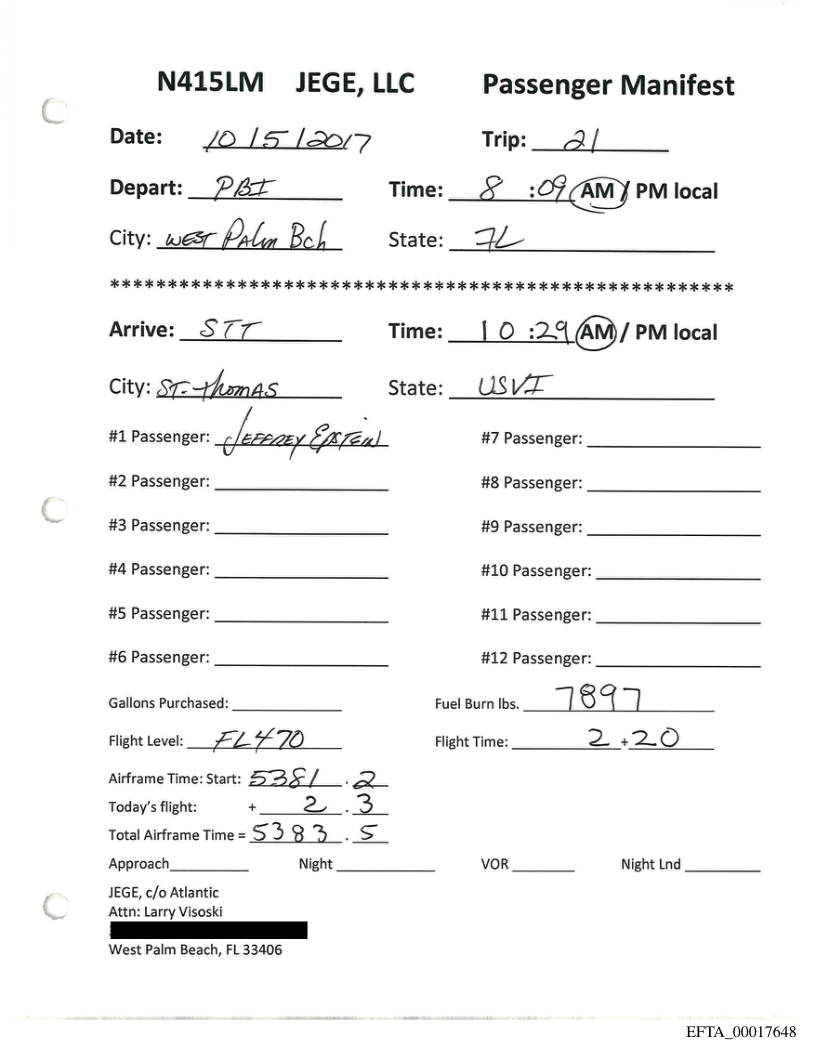 N415LM JEGE, LLC Passenger Manifest
Date: 10/5/2017 Trip: 21
Depart: PBI Time: 8 :09 AM / PM local
City: WEST PALM Bch State: FL
******************************************************
Arrive: STT Time: 10 :29 AM / PM local
City: ST-thomAS State: USVI
#1 Passenger: JEFFREY EPSTEIN #7 Passenger:
#2 Passenger: #8 Passenger:
#3 Passenger: #9 Passenger:
#4 Passenger: #10 Passenger:
#5 Passenger: #11 Passenger:
#6 Passenger: #12 Passenger:
Gallons Purchased: Fuel Burn lbs. 7897
Flight Level: FL470 Flight Time: 2 +20
Airframe Time: Start: 5381 . 2
Today's flight: + 2 . 3
Total Airframe Time = 5383 . 5
Approach Night VOR Night Lnd
JEGE, c/o Atlantic
Attn: Larry Visoski
West Palm Beach, FL 33406
EFTA_00017648